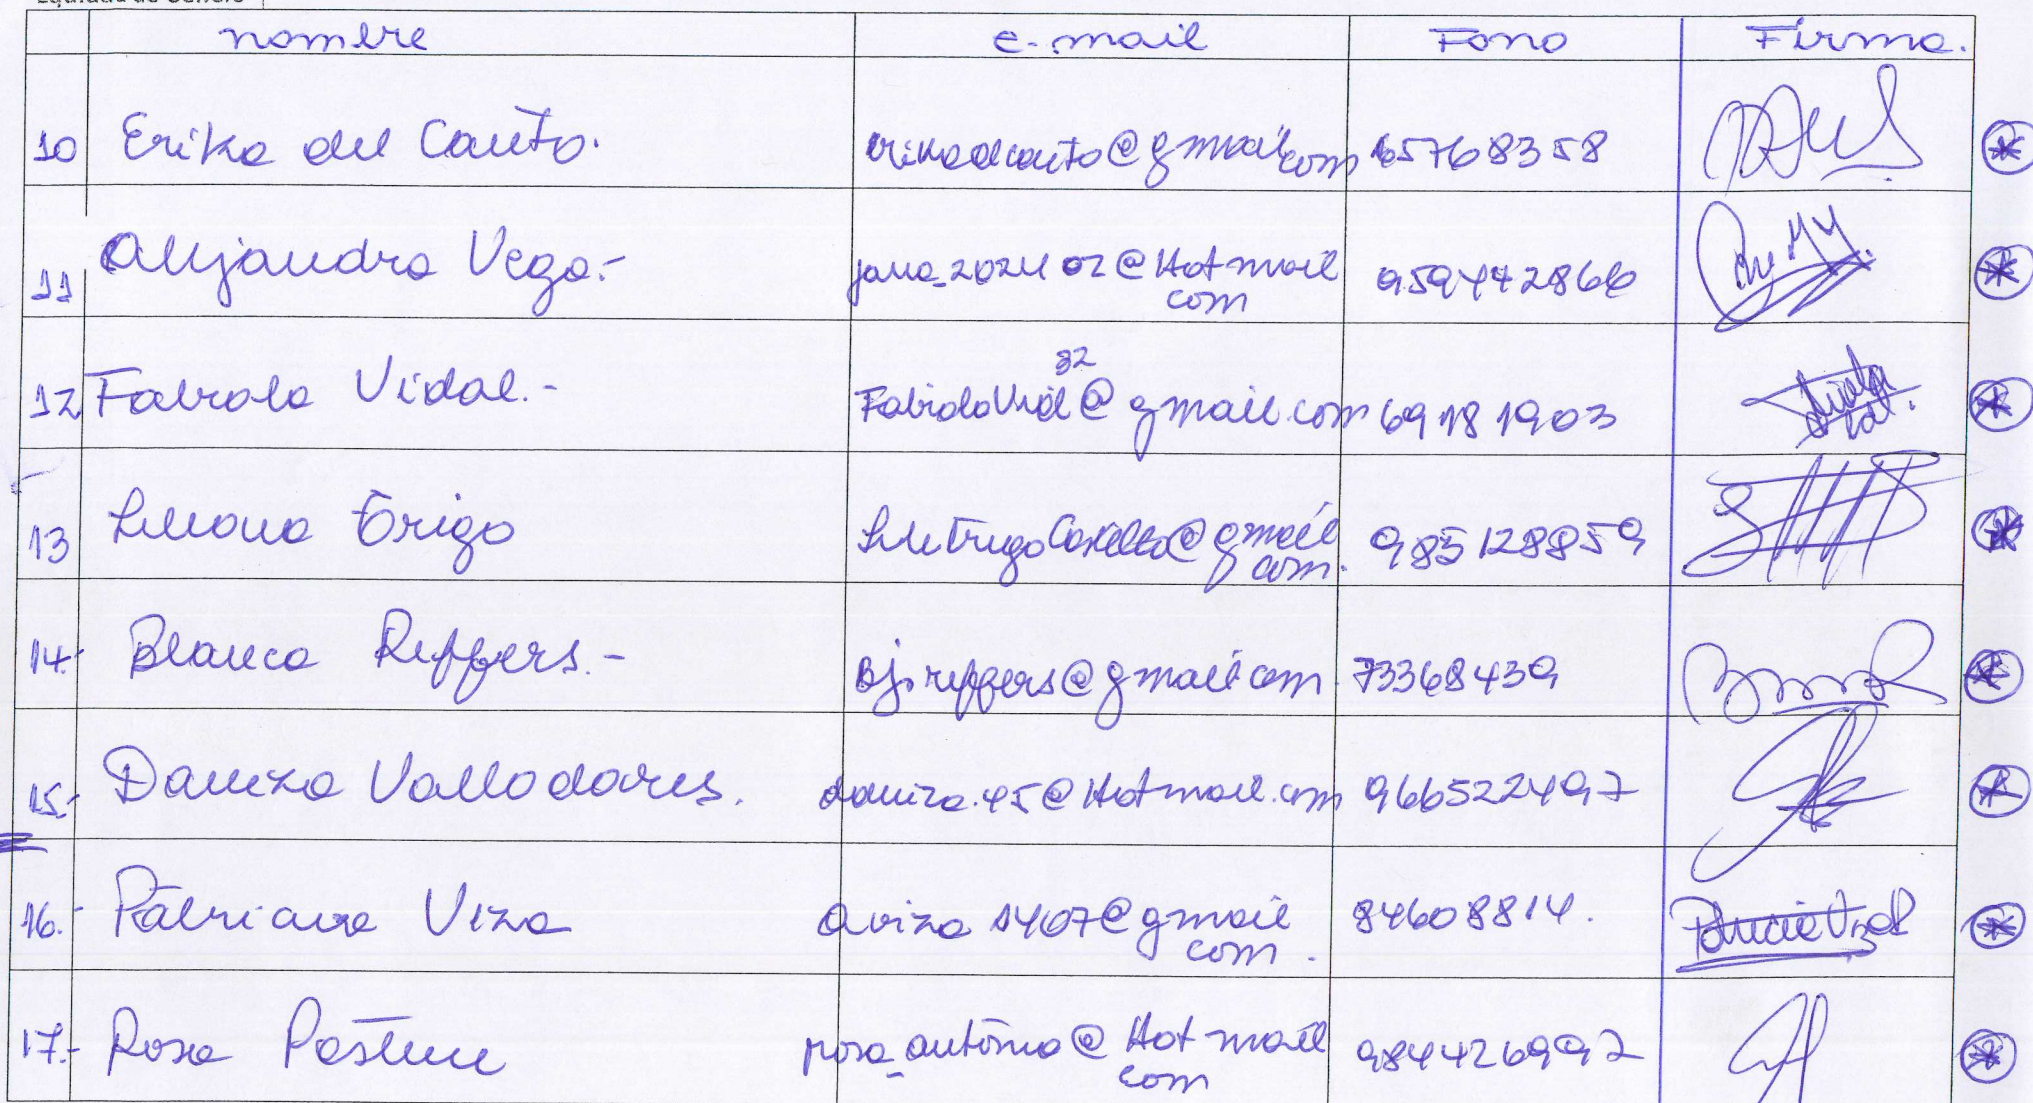 nombre e-mail Fono Firma.
10 Erika del Canto. erikadelcanto@gmail.com 65768358
11 Alejandra Vega.- jana_202402@Hotmail.com 959442866
12 Fabiola Vidal.- FabiolaVidal82@gmail.com 69181903
13 Liliana Trigo 985128859
14.- Blanca Reffers.- Bj.reffers@gmail.com 73368439
15.- Daniza Valladares. daniza.45@Hotmail.com 966522497
16.- Patricia Viza aviza1407@gmail.com. 84608814.
17.- Rosa Pasten rosa_antonia@Hotmail.com 984426992